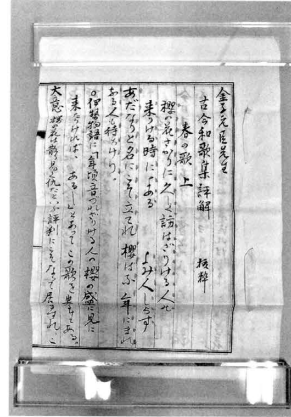 金子元臣先生
古今和歌集評解 抜粋
春の歌 上
桜の花さかりに久しく訪はざりける人の
来りける時によみける よみ人しらず
あだなりと名にこそ立てれ桜ばな年にまれ
なる人も待ちけり
○伊勢物語に「年頃音づれざりける人の桜の盛に見に
来たりければ、あるじ」とあってこの歌を載せてある。
大意 桜花は散り易く仇だといふ評判にこそなって居るけれ、こ